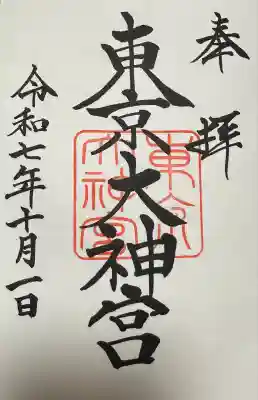 奉拝
東京大神宮
東京大神宮
令和七年十月一日